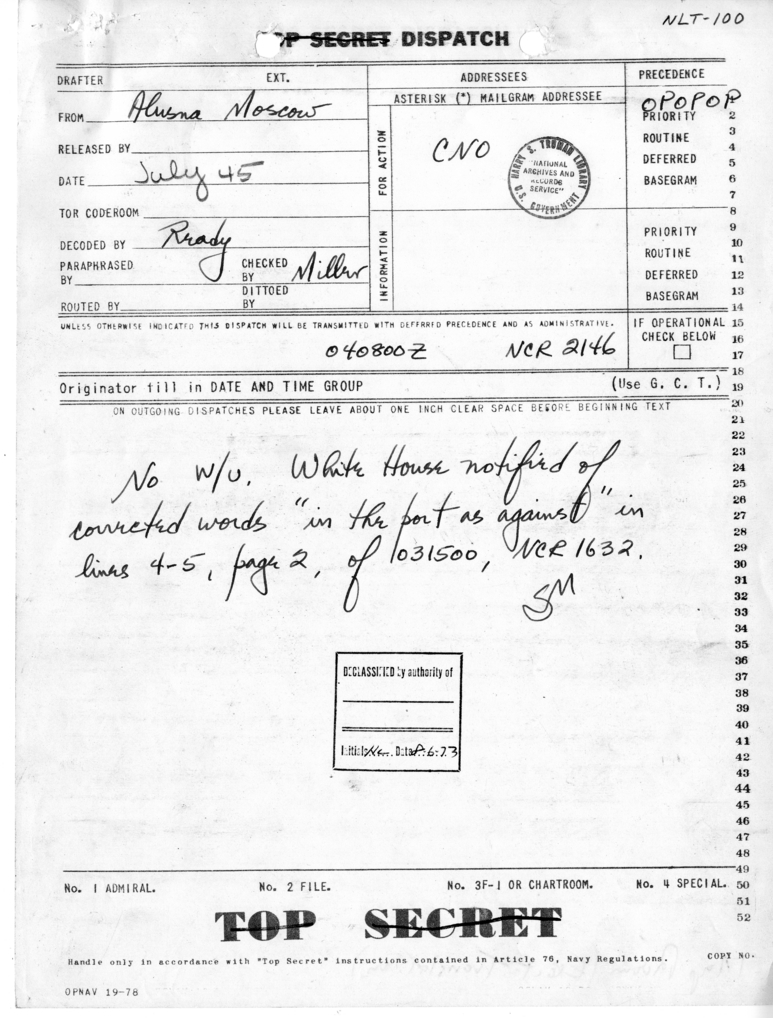 NLT-100
TOP SECRET DISPATCH
DRAFTER EXT.
FROM Alusna Moscow
RELEASED BY
DATE July 45
TOR CODEROOM
DECODED BY
PARAPHRASED BY
CHECKED BY Miller
DITTOED BY
ROUTED BY
ADDRESSEES
ASTERISK (*) MAILGRAM ADDRESSEE
FOR ACTION
CNO
HARRY S. TRUMAN LIBRARY
"NATIONAL
ARCHIVES AND
RECORDS
SERVICE"
U.S. GOVERNMENT
INFORMATION
PRECEDENCE
OPOPOP
PRIORITY
ROUTINE
DEFERRED
BASEGRAM
PRIORITY
ROUTINE
DEFERRED
BASEGRAM
UNLESS OTHERWISE INDICATED THIS DISPATCH WILL BE TRANSMITTED WITH DEFERRED PRECEDENCE AND AS ADMINISTRATIVE.
IF OPERATIONAL
CHECK BELOW
040800Z NCR 2146
Originator fill in DATE AND TIME GROUP (Use G. C. T.)
ON OUTGOING DISPATCHES PLEASE LEAVE ABOUT ONE INCH CLEAR SPACE BEFORE BEGINNING TEXT
No W/U. White House notified of
corrected words "in the port as against" in
lines 4-5, page 2, of 031500, NCR 1632.
SM
DECLASSIFIED by authority of
Initials Date
2
3
4
5
6
7
8
9
10
11
12
13
14
15
16
17
18
19
20
21
22
23
24
25
26
27
28
29
30
31
32
33
34
35
36
37
38
39
40
41
42
43
44
45
46
47
48
49
50
51
52
No. 1 ADMIRAL. No. 2 FILE. No. 3F-1 OR CHARTROOM. No. 4 SPECIAL.
TOP SECRET
Handle only in accordance with "Top Secret" instructions contained in Article 76, Navy Regulations.
COPY NO.
OPNAV 19-78